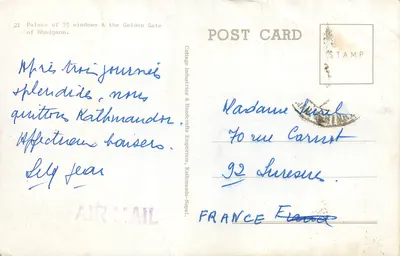 21 Palace of 55 windows & the Golden Gate
of Bhadgaon.
POST CARD
STAMP
Après trois journées
splendides, nous
quittons Kathmandou.
Affectueux baisers.
AIR MAIL
Cottage Industries & Handicrafts Emporium, Kathmandu-Nepal.
Madame
70 rue Carnot
92 Suresnes
FRANCE France